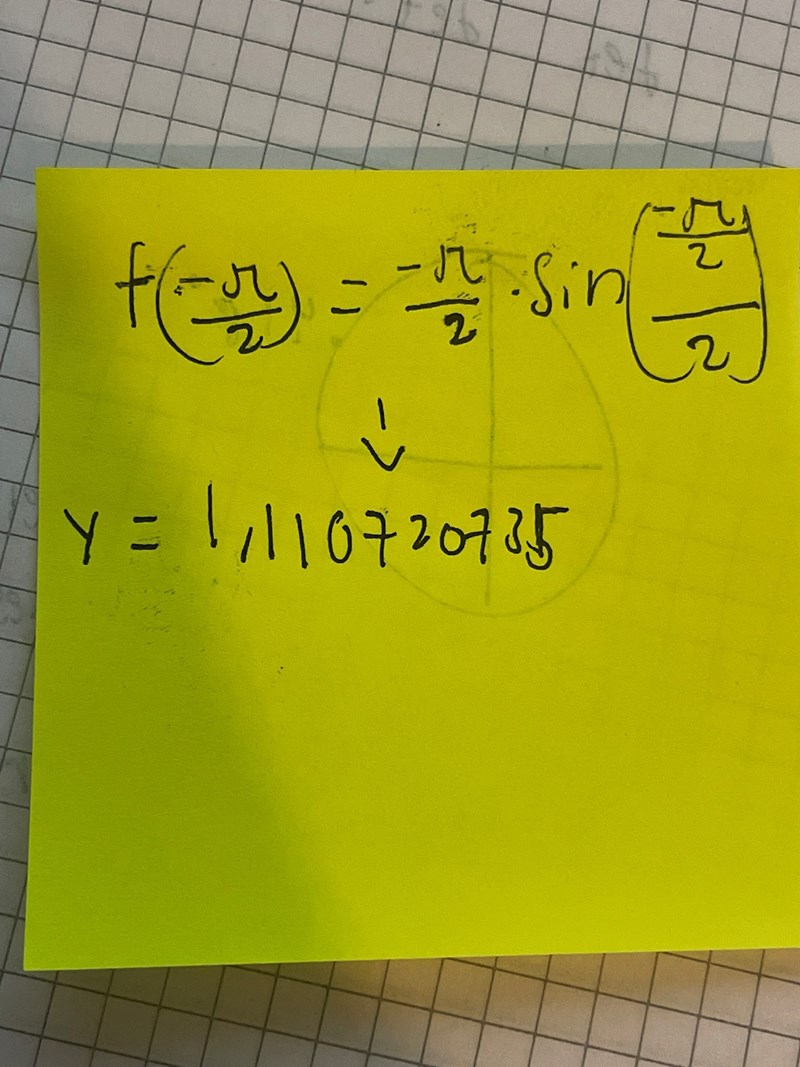 f(-π/2) = -π/2 · sin((-π/2)/2)
↓
y = 1,110720735